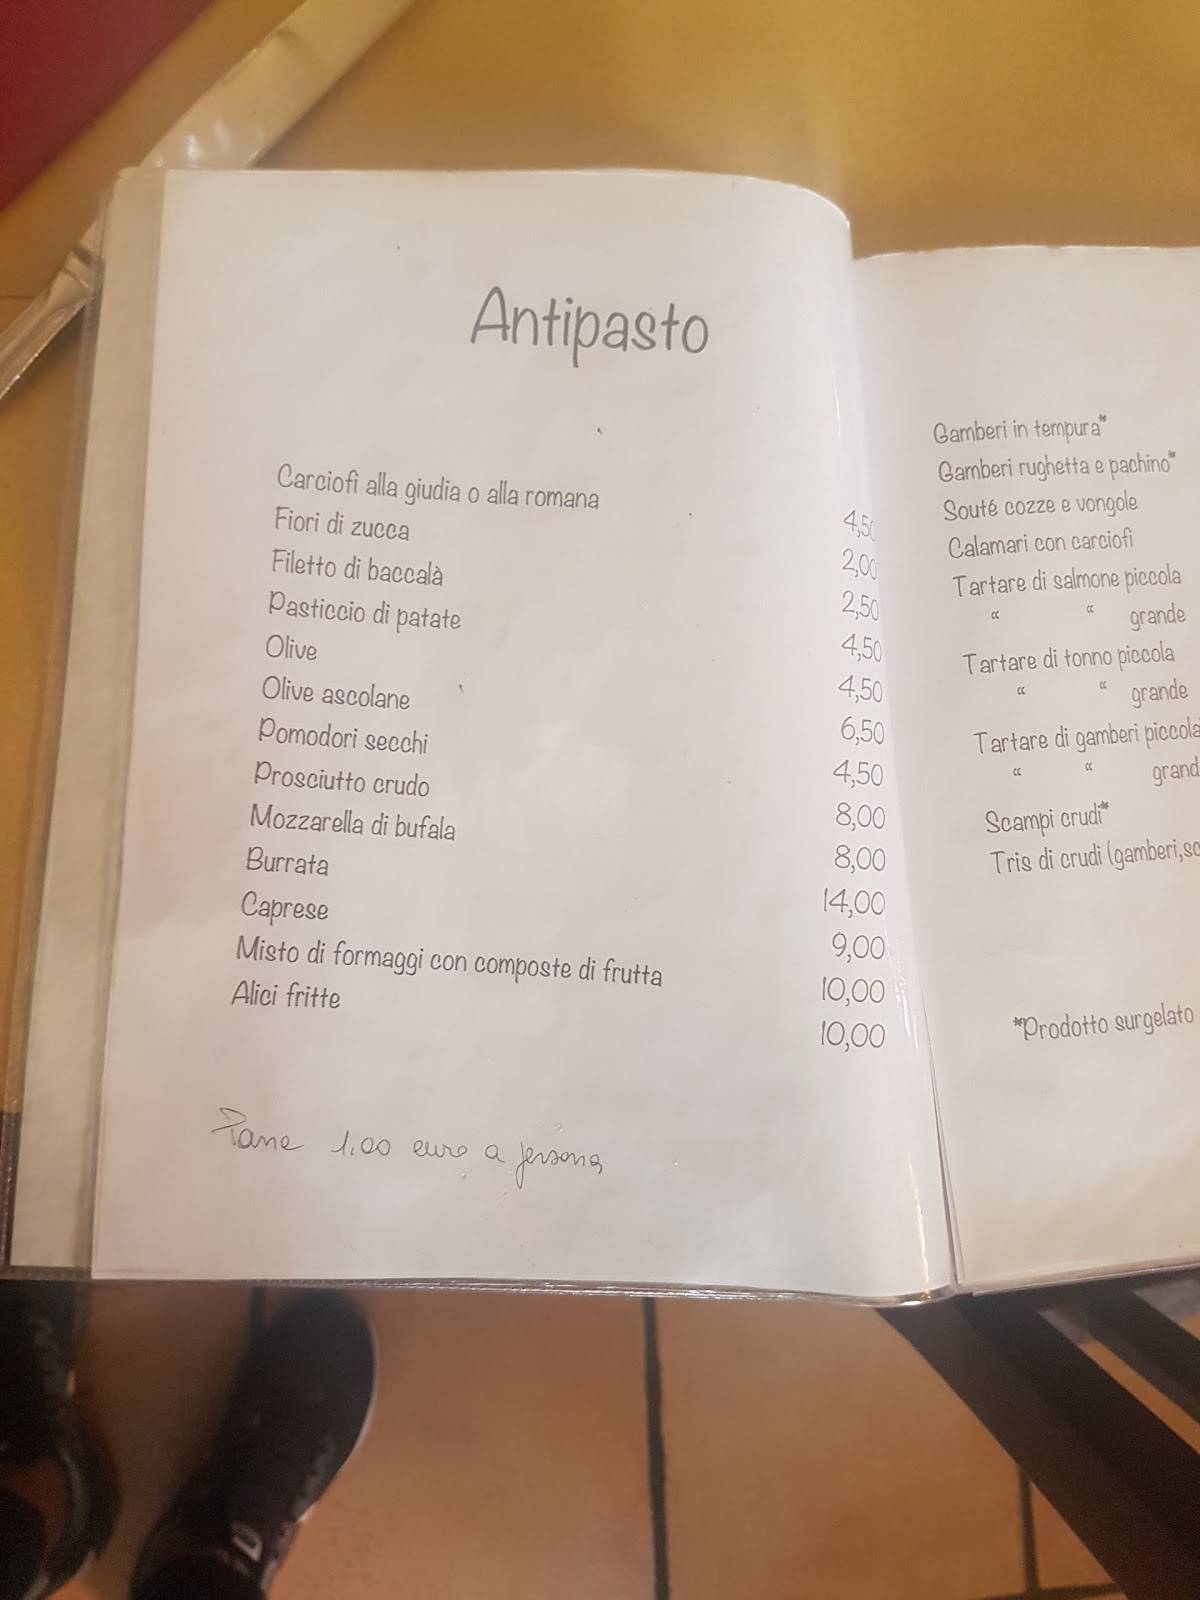 Antipasto
Carciofi alla giudia o alla romana 4,50
Fiori di zucca 2,00
Filetto di baccalà 2,50
Pasticcio di patate 4,50
Olive 4,50
Olive ascolane 6,50
Pomodori secchi 4,50
Prosciutto crudo 8,00
Mozzarella di bufala 8,00
Burrata 14,00
Caprese 9,00
Misto di formaggi con composte di frutta 10,00
Alici fritte 10,00
Pane 1.00 euro a persona
Gamberi in tempura*
Gamberi rughetta e pachino*
Souté cozze e vongole
Calamari con carciofi
Tartare di salmone piccola
“ “ grande
Tartare di tonno piccola
“ “ grande
Tartare di gamberi piccola
“ “ grand
Scampi crudi*
Tris di crudi (gamberi,sc
*Prodotto surgelato